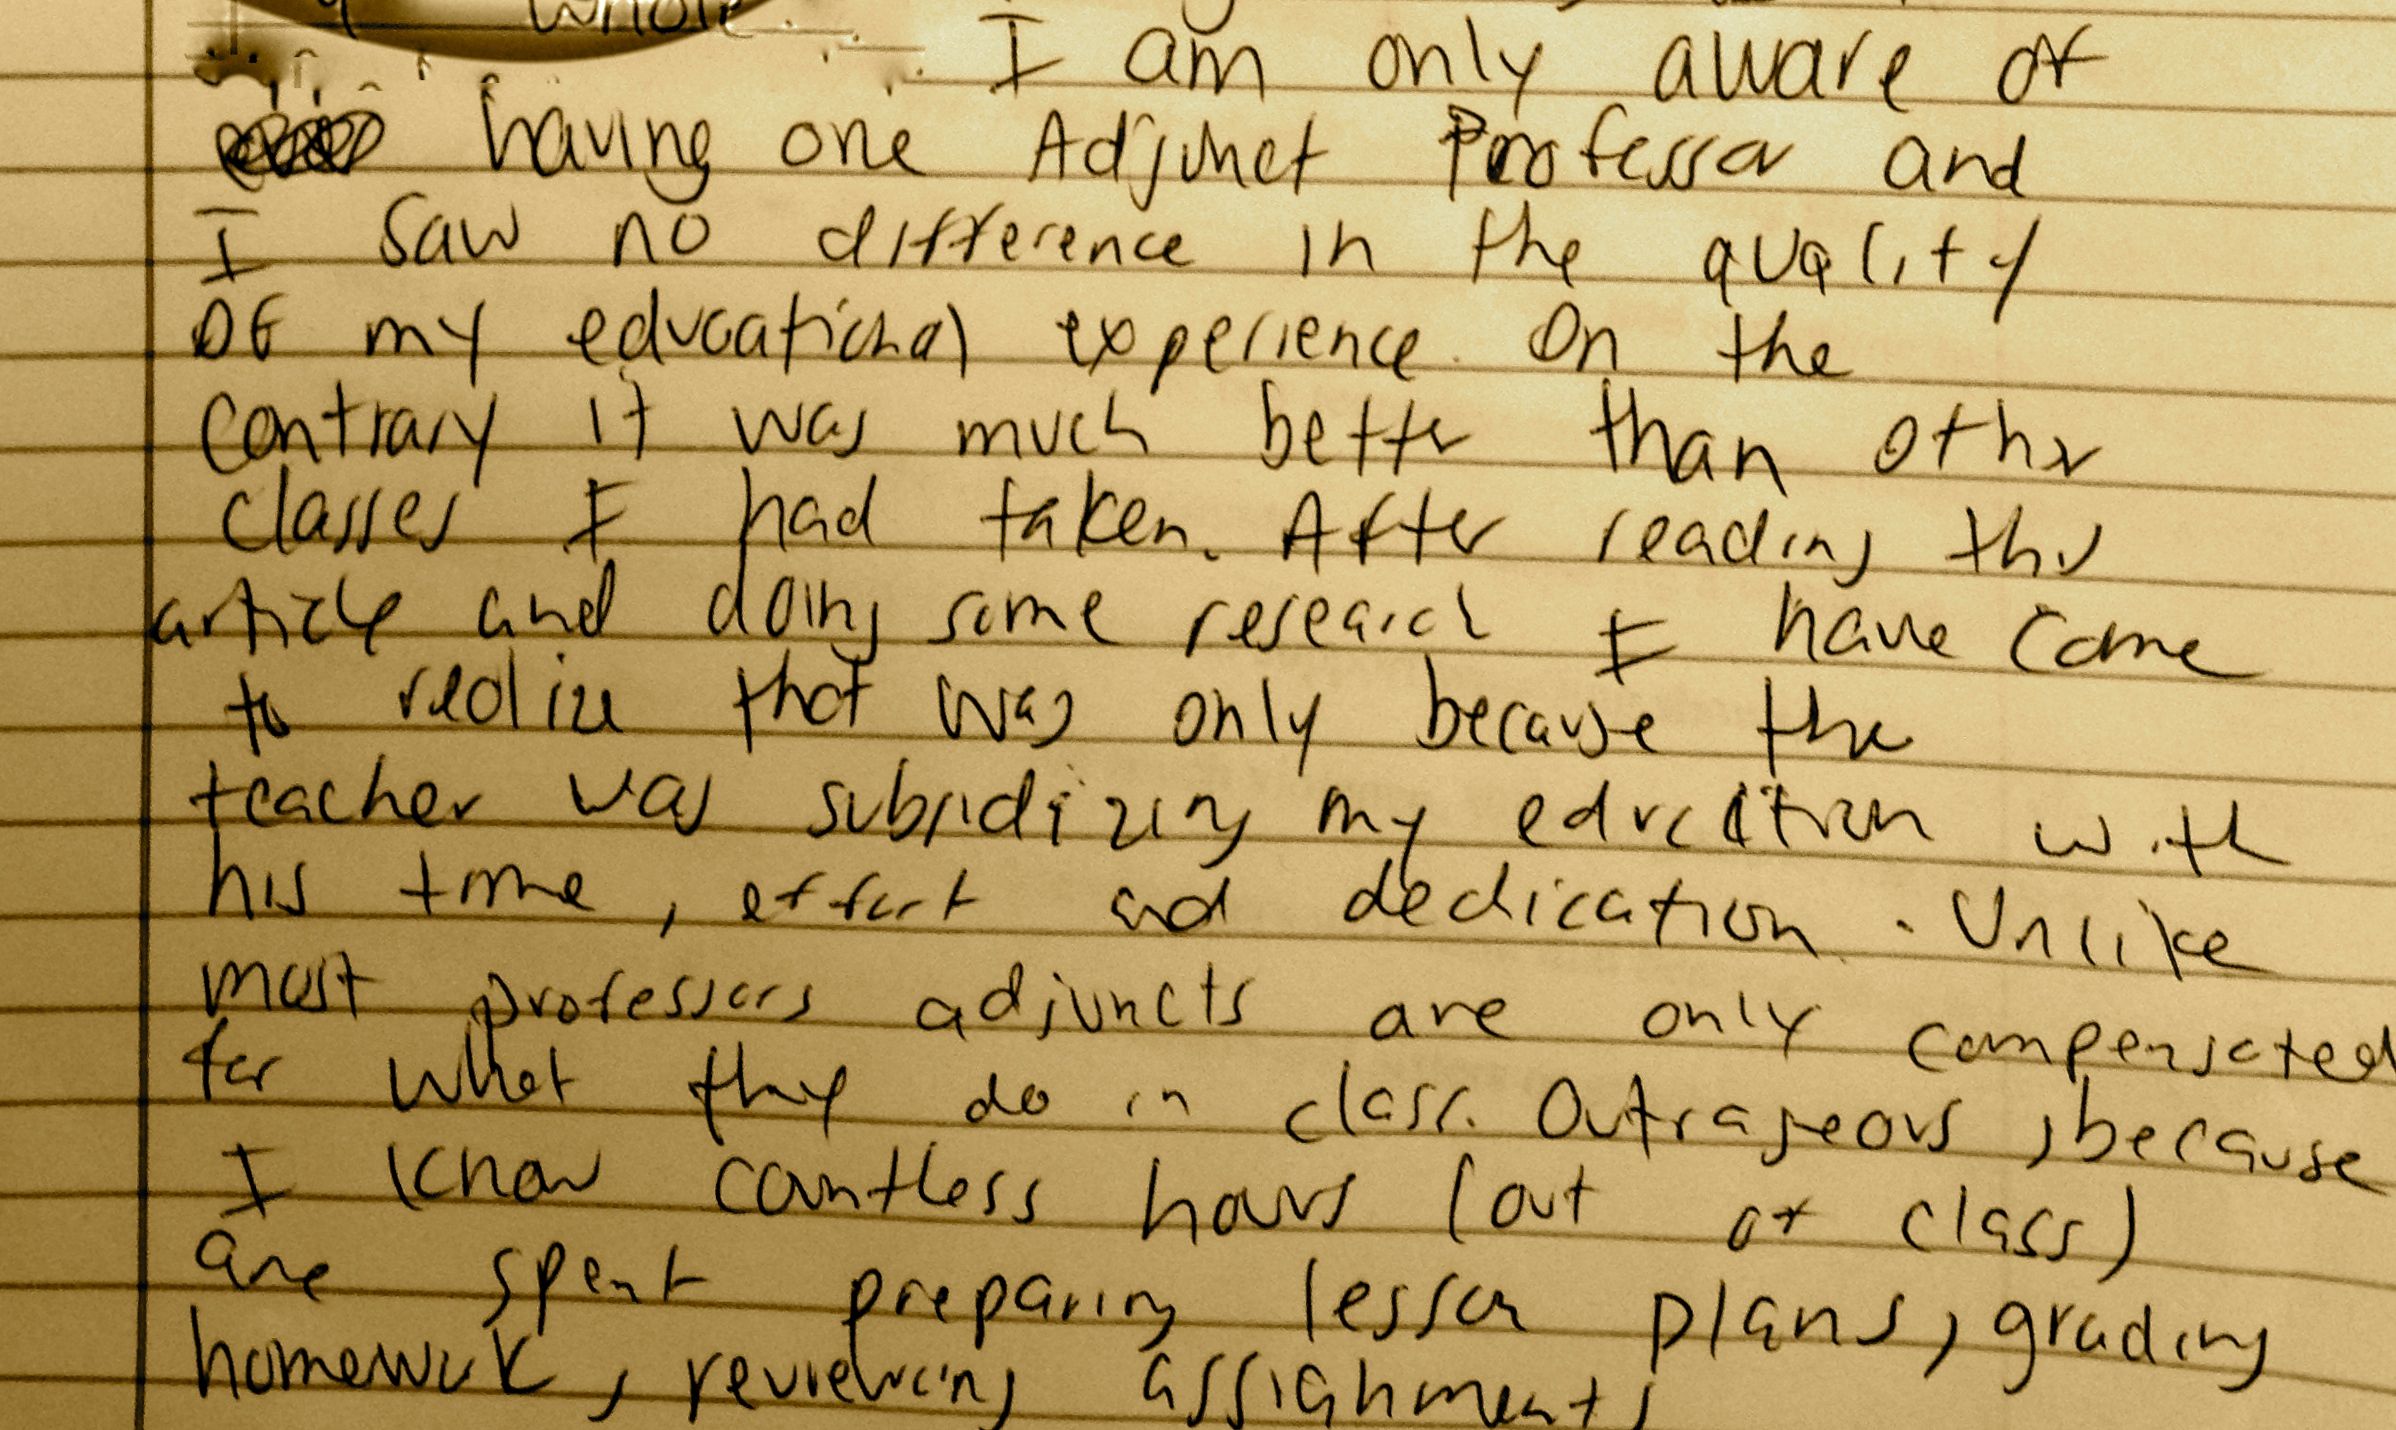 whole. I am only aware of
having one Adjunct Professor and
I saw no difference in the quality
of my educational experience. On the
contrary it was much better than other
classes I had taken. After reading this
article and doing some research I have come
to realize that was only because the
teacher was subsidizing my education with
his time, effort and dedication. Unlike
most professors adjuncts are only compensated
for what they do in class. Outrageous, because
I know countless hours (out of class)
are spent preparing lesson plans, grading
homework, reviewing assignments